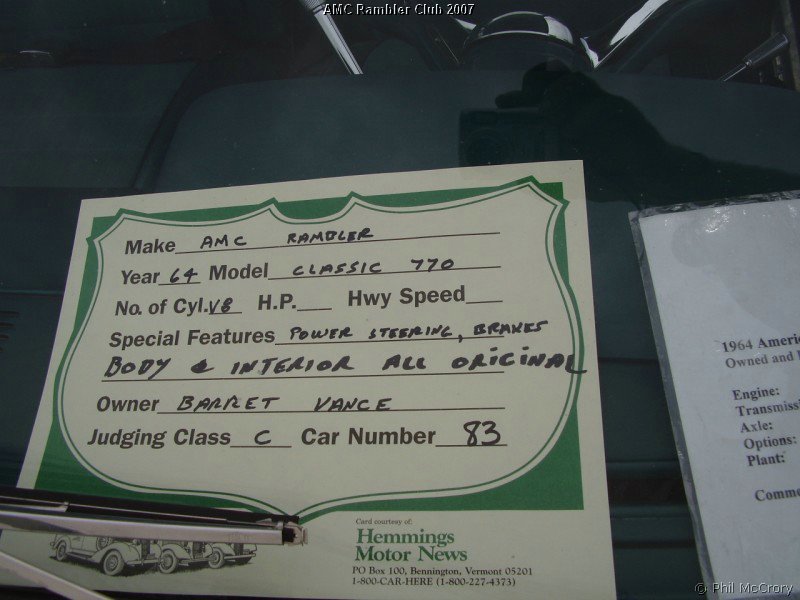 AMC Rambler Club 2007
Make AMC RAMBLER
Year 64 Model CLASSIC 770
No. of Cyl. V8 H.P. Hwy Speed
Special Features POWER STEERING, BRAKES
BODY & INTERIOR ALL ORIGINAL
Owner BARRET VANCE
Judging Class C Car Number 83
Card courtesy of:
Hemmings
Motor News
PO Box 100, Bennington, Vermont 05201
1-800-CAR-HERE (1-800-227-4373)
1964 Americ
Owned and
Engine:
Transmiss
Axle:
Options:
Plant:
Comm
© Phil McCrory